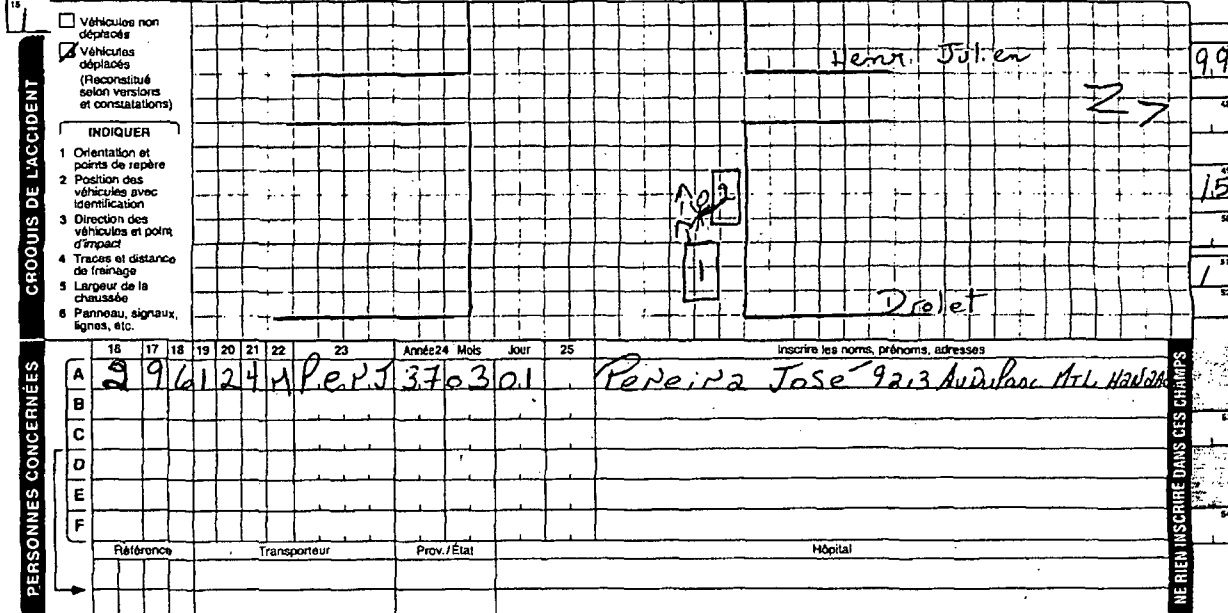 15
1
Véhicules non
déplacés
Véhicules
déplacés
(Reconstitué
selon versions
et constatations)
INDIQUER
1 Orientation et
points de repère
2 Position des
véhicules avec
identification
3 Direction des
véhicules et point
d'impact
4 Traces et distance
de freinage
5 Largeur de la
chaussée
6 Panneau, signaux,
lignes, etc.
CROQUIS DE L'ACCIDENT
Henri Julien
2
1
Drolet
9,9
1,5
1
PERSONNES CONCERNÉES
16 17 18 19 20 21 22 23 Année 24 Mois Jour 25 Inscrire les noms, prénoms, adresses
A 2 9 6 1 2 4 M P.e.r.J 37 03 01 Pereira José 923 Av Du Parc MTL
B
C
D
E
F
Référence Transporteur Prov./État Hôpital
NE RIEN INSCRIRE DANS CES CHAMPS